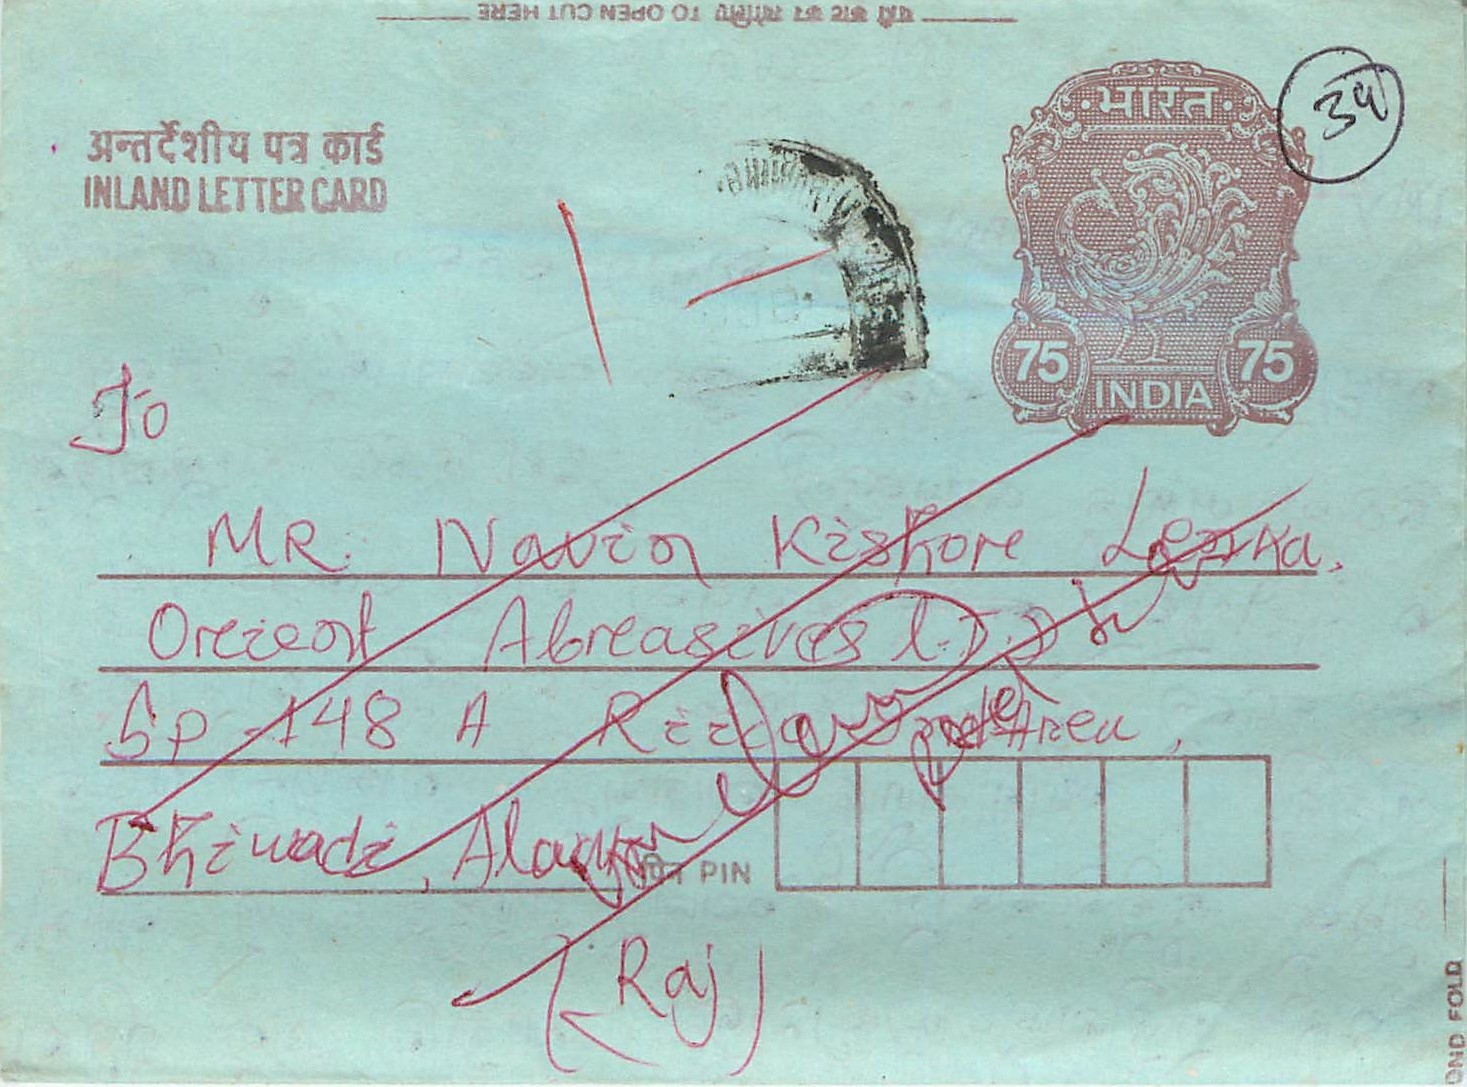 यहाँ काट कर खोलिए TO OPEN CUT HERE
अन्तर्देशीय पत्र कार्ड
INLAND LETTER CARD
भारत
75 75
INDIA
39
To
MR. Navin Kishore Lenka,
Orient Abreasives L.T.D
Sp-148 A Riico Area,
Bhiwadi, Alawar
पिन PIN
(Raj)
OND FOLD